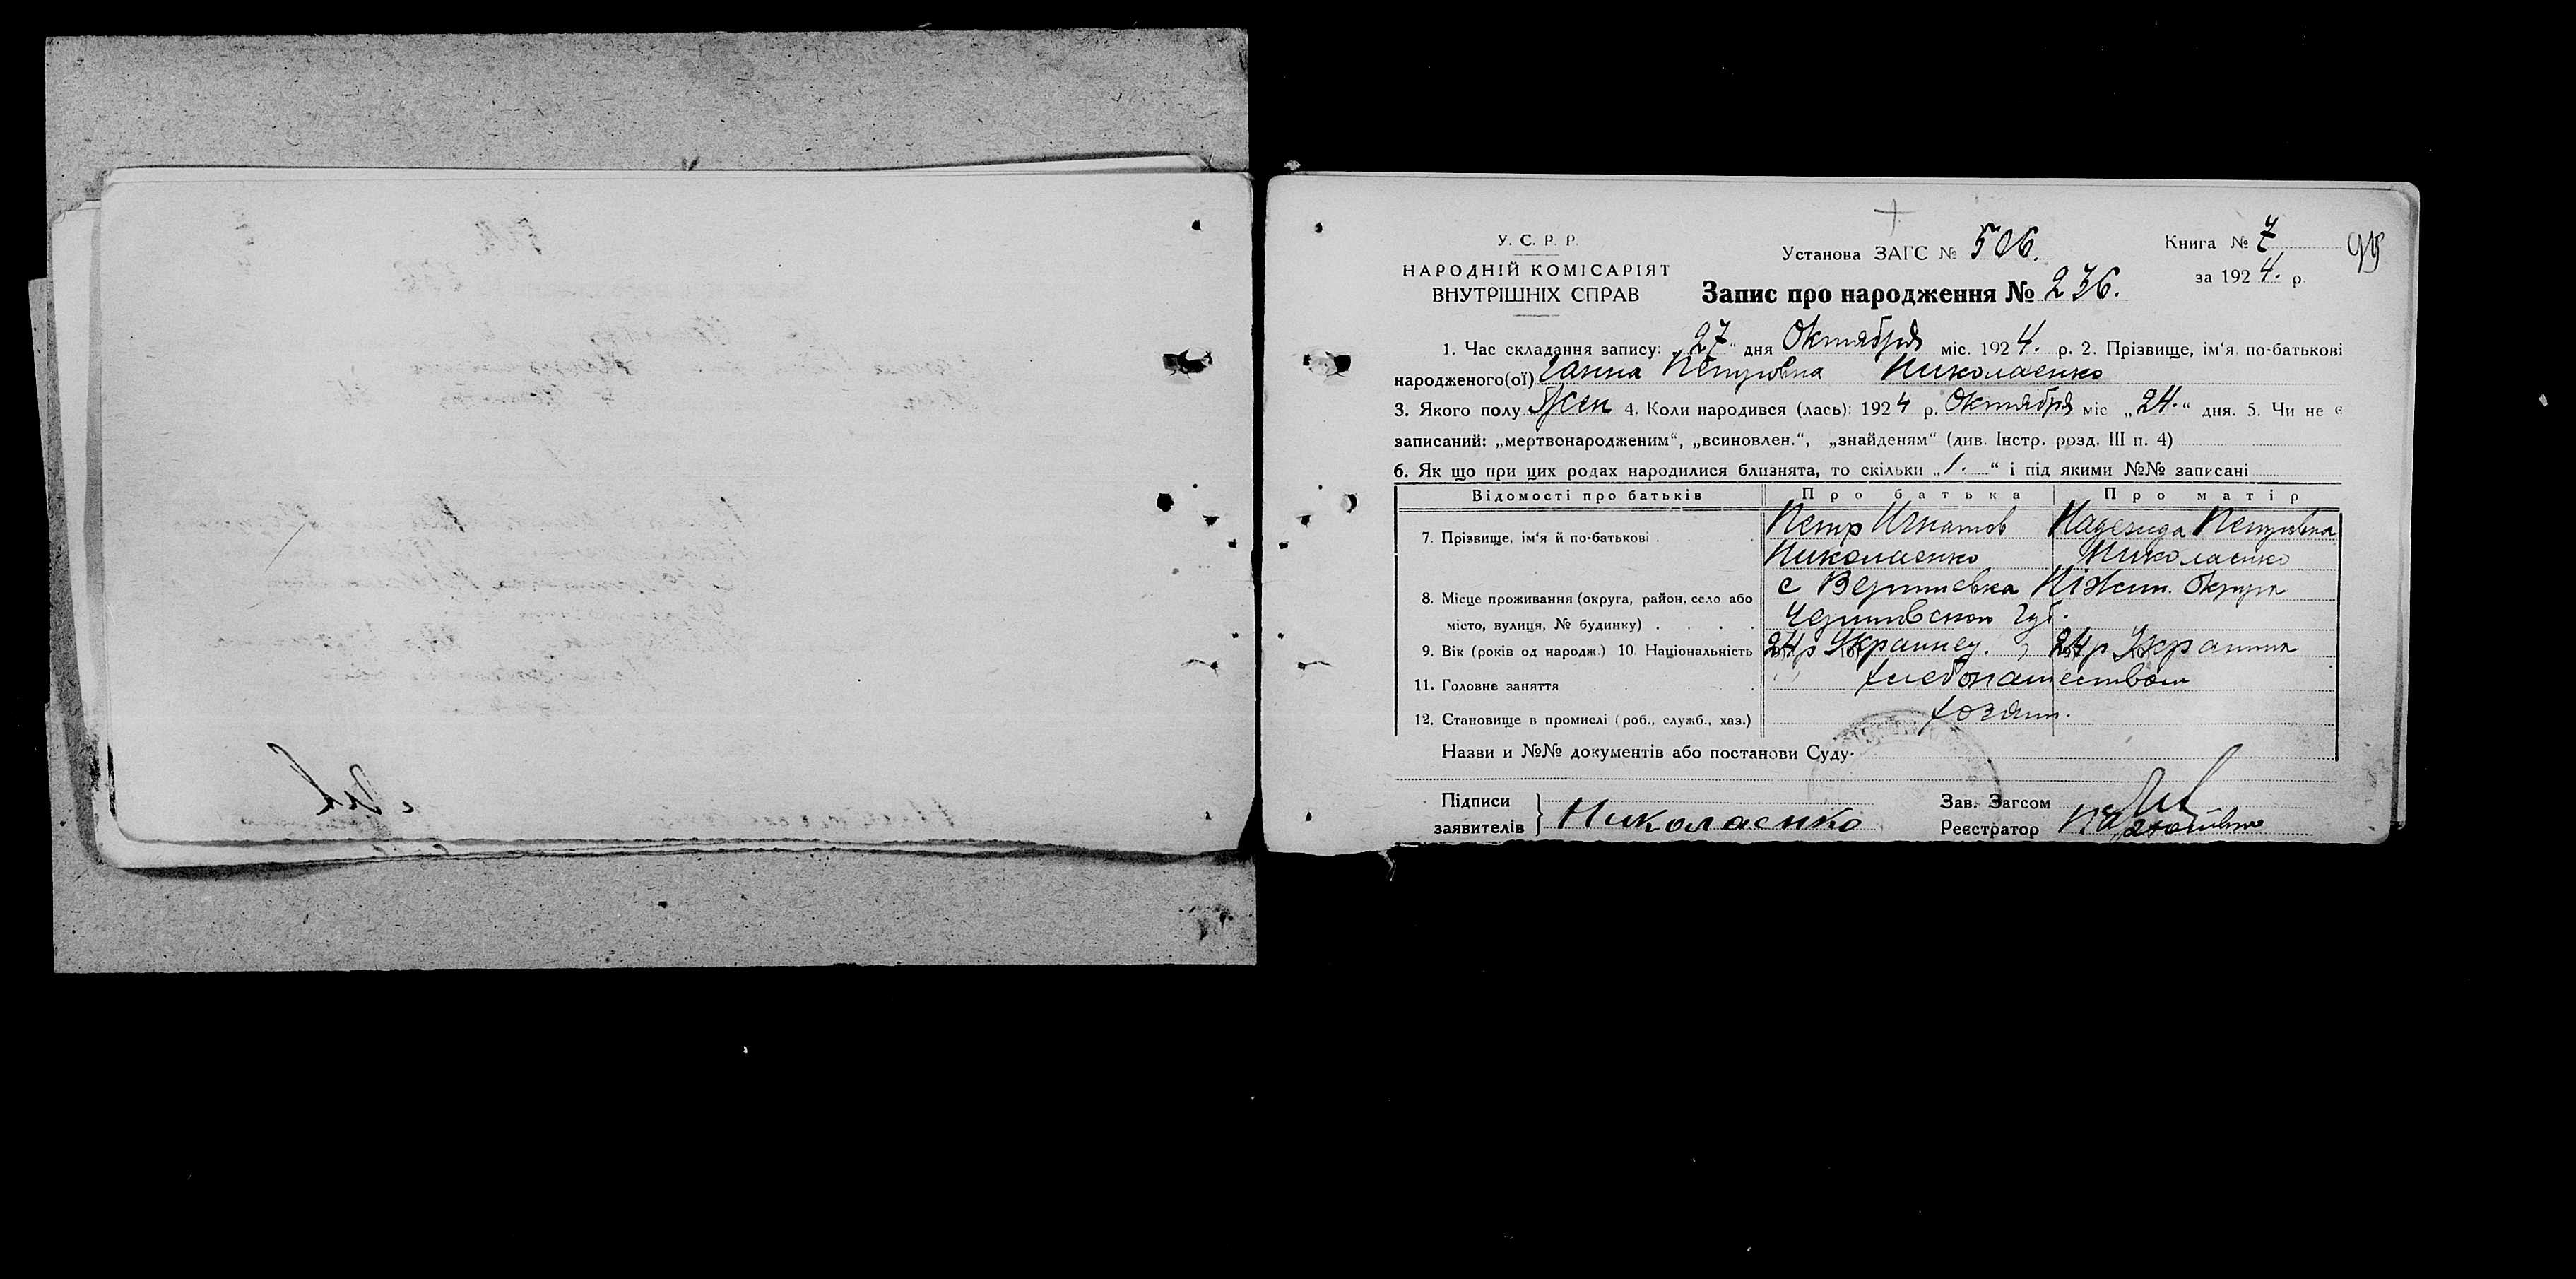 У. С. Р. Р.
НАРОДНІЙ КОМІСАРІЯТ
ВНУТРІШНІХ СПРАВ
Установа ЗАГС № 506.
Запис про народження № 236.
Книга № 7
за 1924. р.
1. Час складання запису: „27“ дня Октября міс. 1924. р. 2. Прізвище, ім'я по-батькові
народженого(ої) Ганна Петровна Николаенко
3. Якого полу Жен 4. Коли народився (лась): 1924 р. Октября міс „24.“ дня. 5. Чи не є
записаний: „мертвонародженим“, „всиновлен.“, „знайденям“ (див. Інстр. розд. III п. 4)
6. Як що при цих родах народилися близнята, то скільки „1.“ і під якими №№ записані
Відомості про батьків Про батька Про матір
7. Прізвище, ім'я й по-батькові . Петр Игнатов Надежда Петровна
Николаенко Николаенко
8. Місце проживання (округа, район, село або с Вертиевка Ніжин. Округи
місто, вулиця, № будинку) . . . . Черниговской Губ.
9. Вік (років од народж.) 10. Національність 24 р Украинец. 24 р Украинка
11. Головне заняття хлебопашеством
12. Становище в промислі (роб., служб., хаз.) хозяин.
Назви и №№ документів або постанови Суду
Підписи
заявителів } Николаенко
Зав. Загсом
Реєстратор